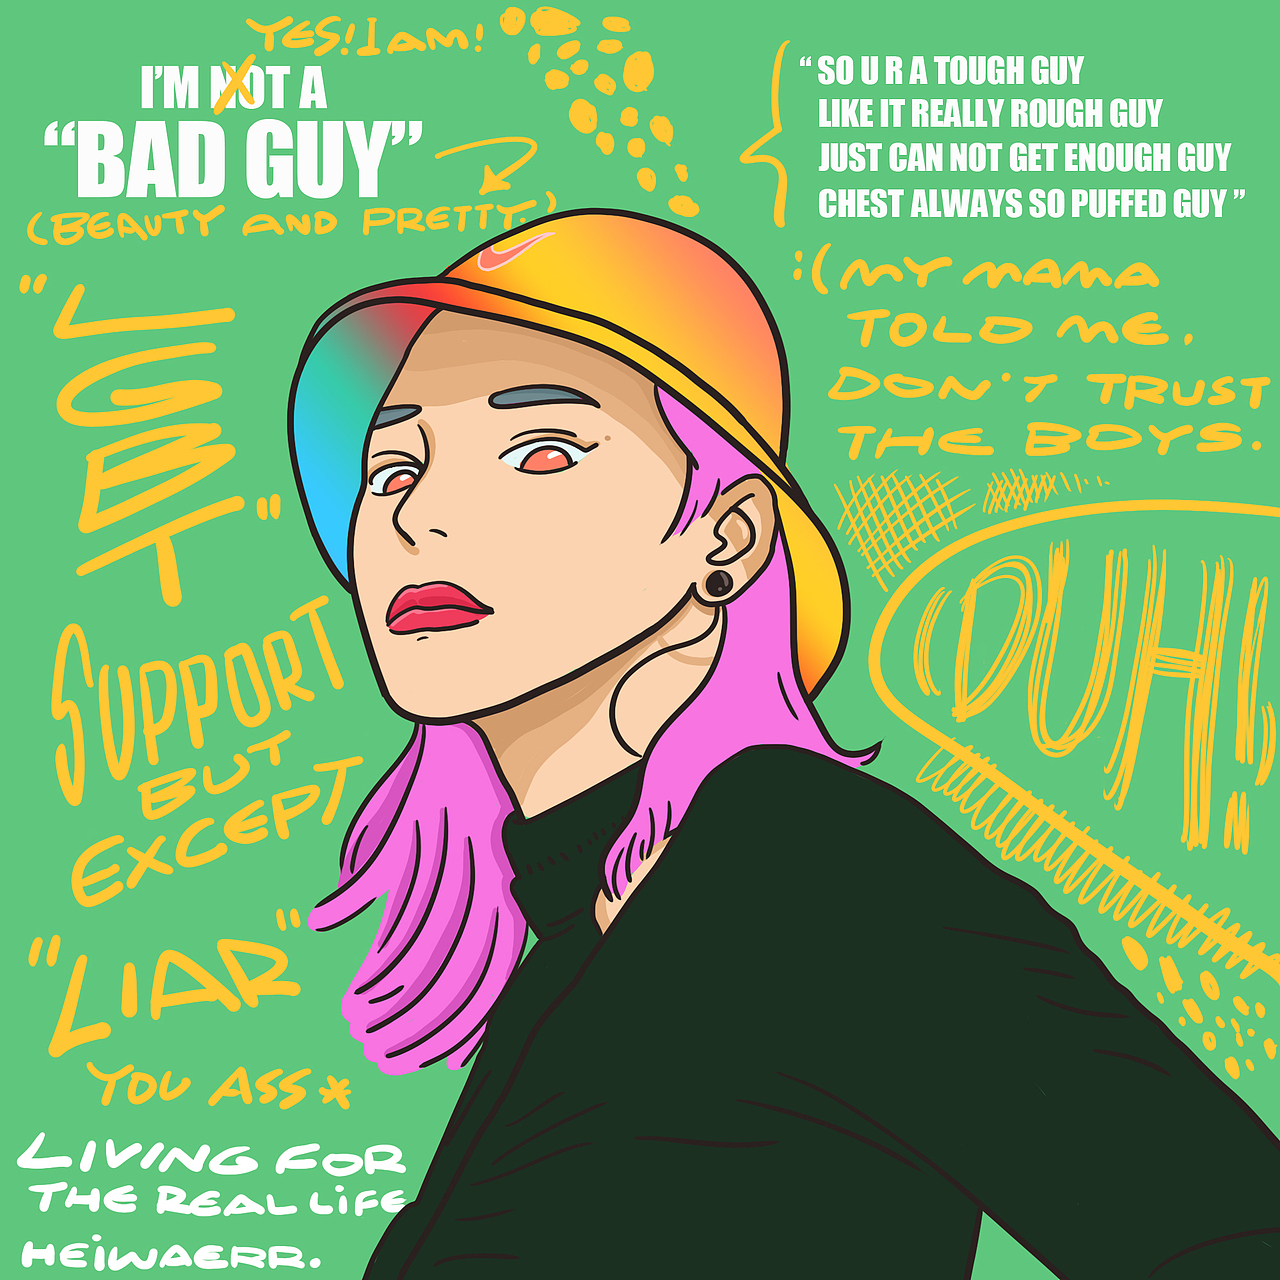 YES! I am!
I'M NOT A
"BAD GUY"
(BEAUTY AND PRETTY.)
"LGBT"
SUPPORT
BUT
EXCEPT
"LIAR"
YOU ASS*
LIVING FOR
THE REAL LIFE
HEIWAERR.
“ SO U R A TOUGH GUY
LIKE IT REALLY ROUGH GUY
JUST CAN NOT GET ENOUGH GUY
CHEST ALWAYS SO PUFFED GUY ”
:( MY MAMA
TOLD ME.
DON'T TRUST
THE BOYS.
DUH!